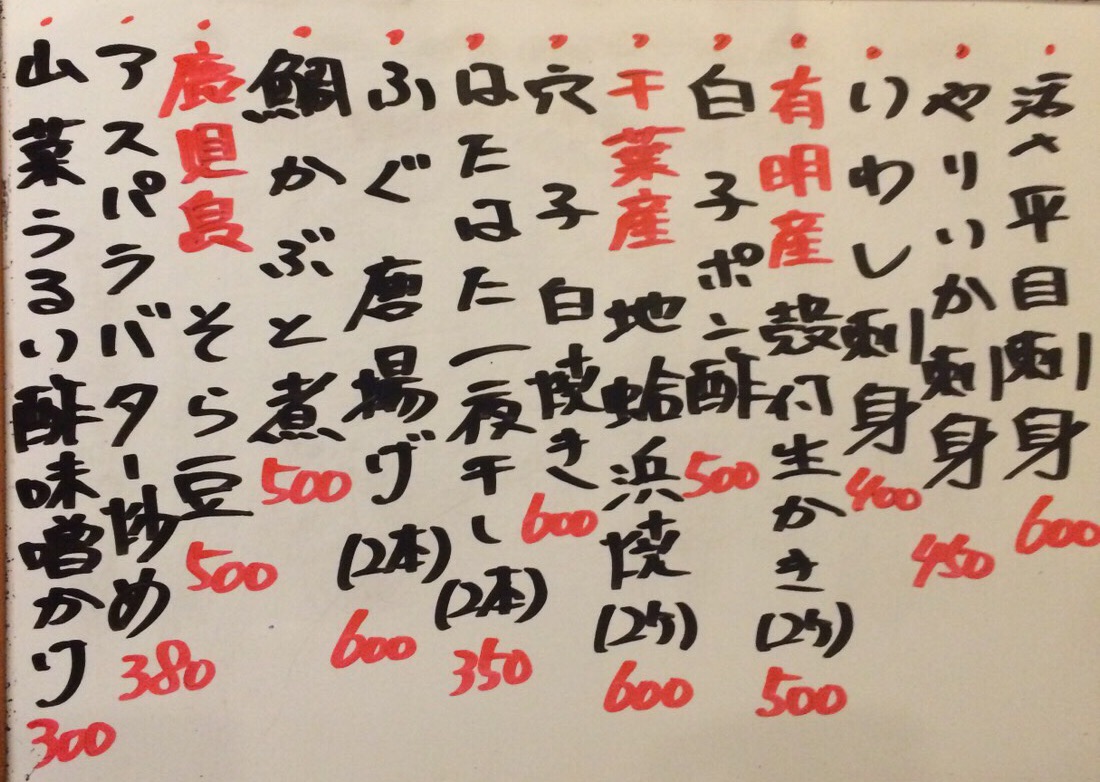 活〆平目刺身 600
やりいか刺身 450
いわし刺身 400
有明産 殻付生かき(2ケ) 500
白子ポン酢 500
千葉産 地蛤浜焼(2ケ) 600
穴子白焼き 600
はたはた一夜干し(2本) 350
ふぐ唐揚げ(2本) 600
鯛かぶと煮 500
鹿児島 そら豆 500
アスパラバター炒め 380
山菜うるい酢味噌かけ 300